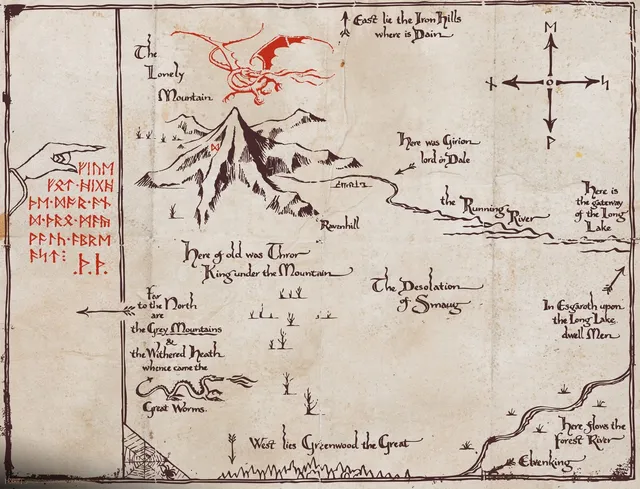 East lie the Iron Hills
where is Dain
ᛖ
The
Lonely
Mountain
ᚾ
ᛋ
ᚹ
ᛞ
Here was Girion
lord in Dale
ᚠᛁᚢᛖ
ᚠᛟᛏ·ᚻᛁᚷᚻ
ᚦᛖ·ᛞᚩᚱ·ᚫᚾ
ᛞ·ᚦᚱᛟ·ᛗᚫᚣ
ᚹᚫᛚᚳ·ᚫᛒᚱᛖ
ᚫᛋᛏ⁝
·ᚦ·ᚦ·
the Running
River
Here is
the gateway
of the Long
Lake
Ravenhill
Here of old was Thror
King under the Mountain
The Desolation
of Smaug
Far
to the North
are
the Grey Mountains
&
the Withered Heath
whence came the
Great Worms.
In Esgaroth upon
the Long Lake
dwell Men
Here flows the
Forest River
West lies Greenwood the Great
Elvenking